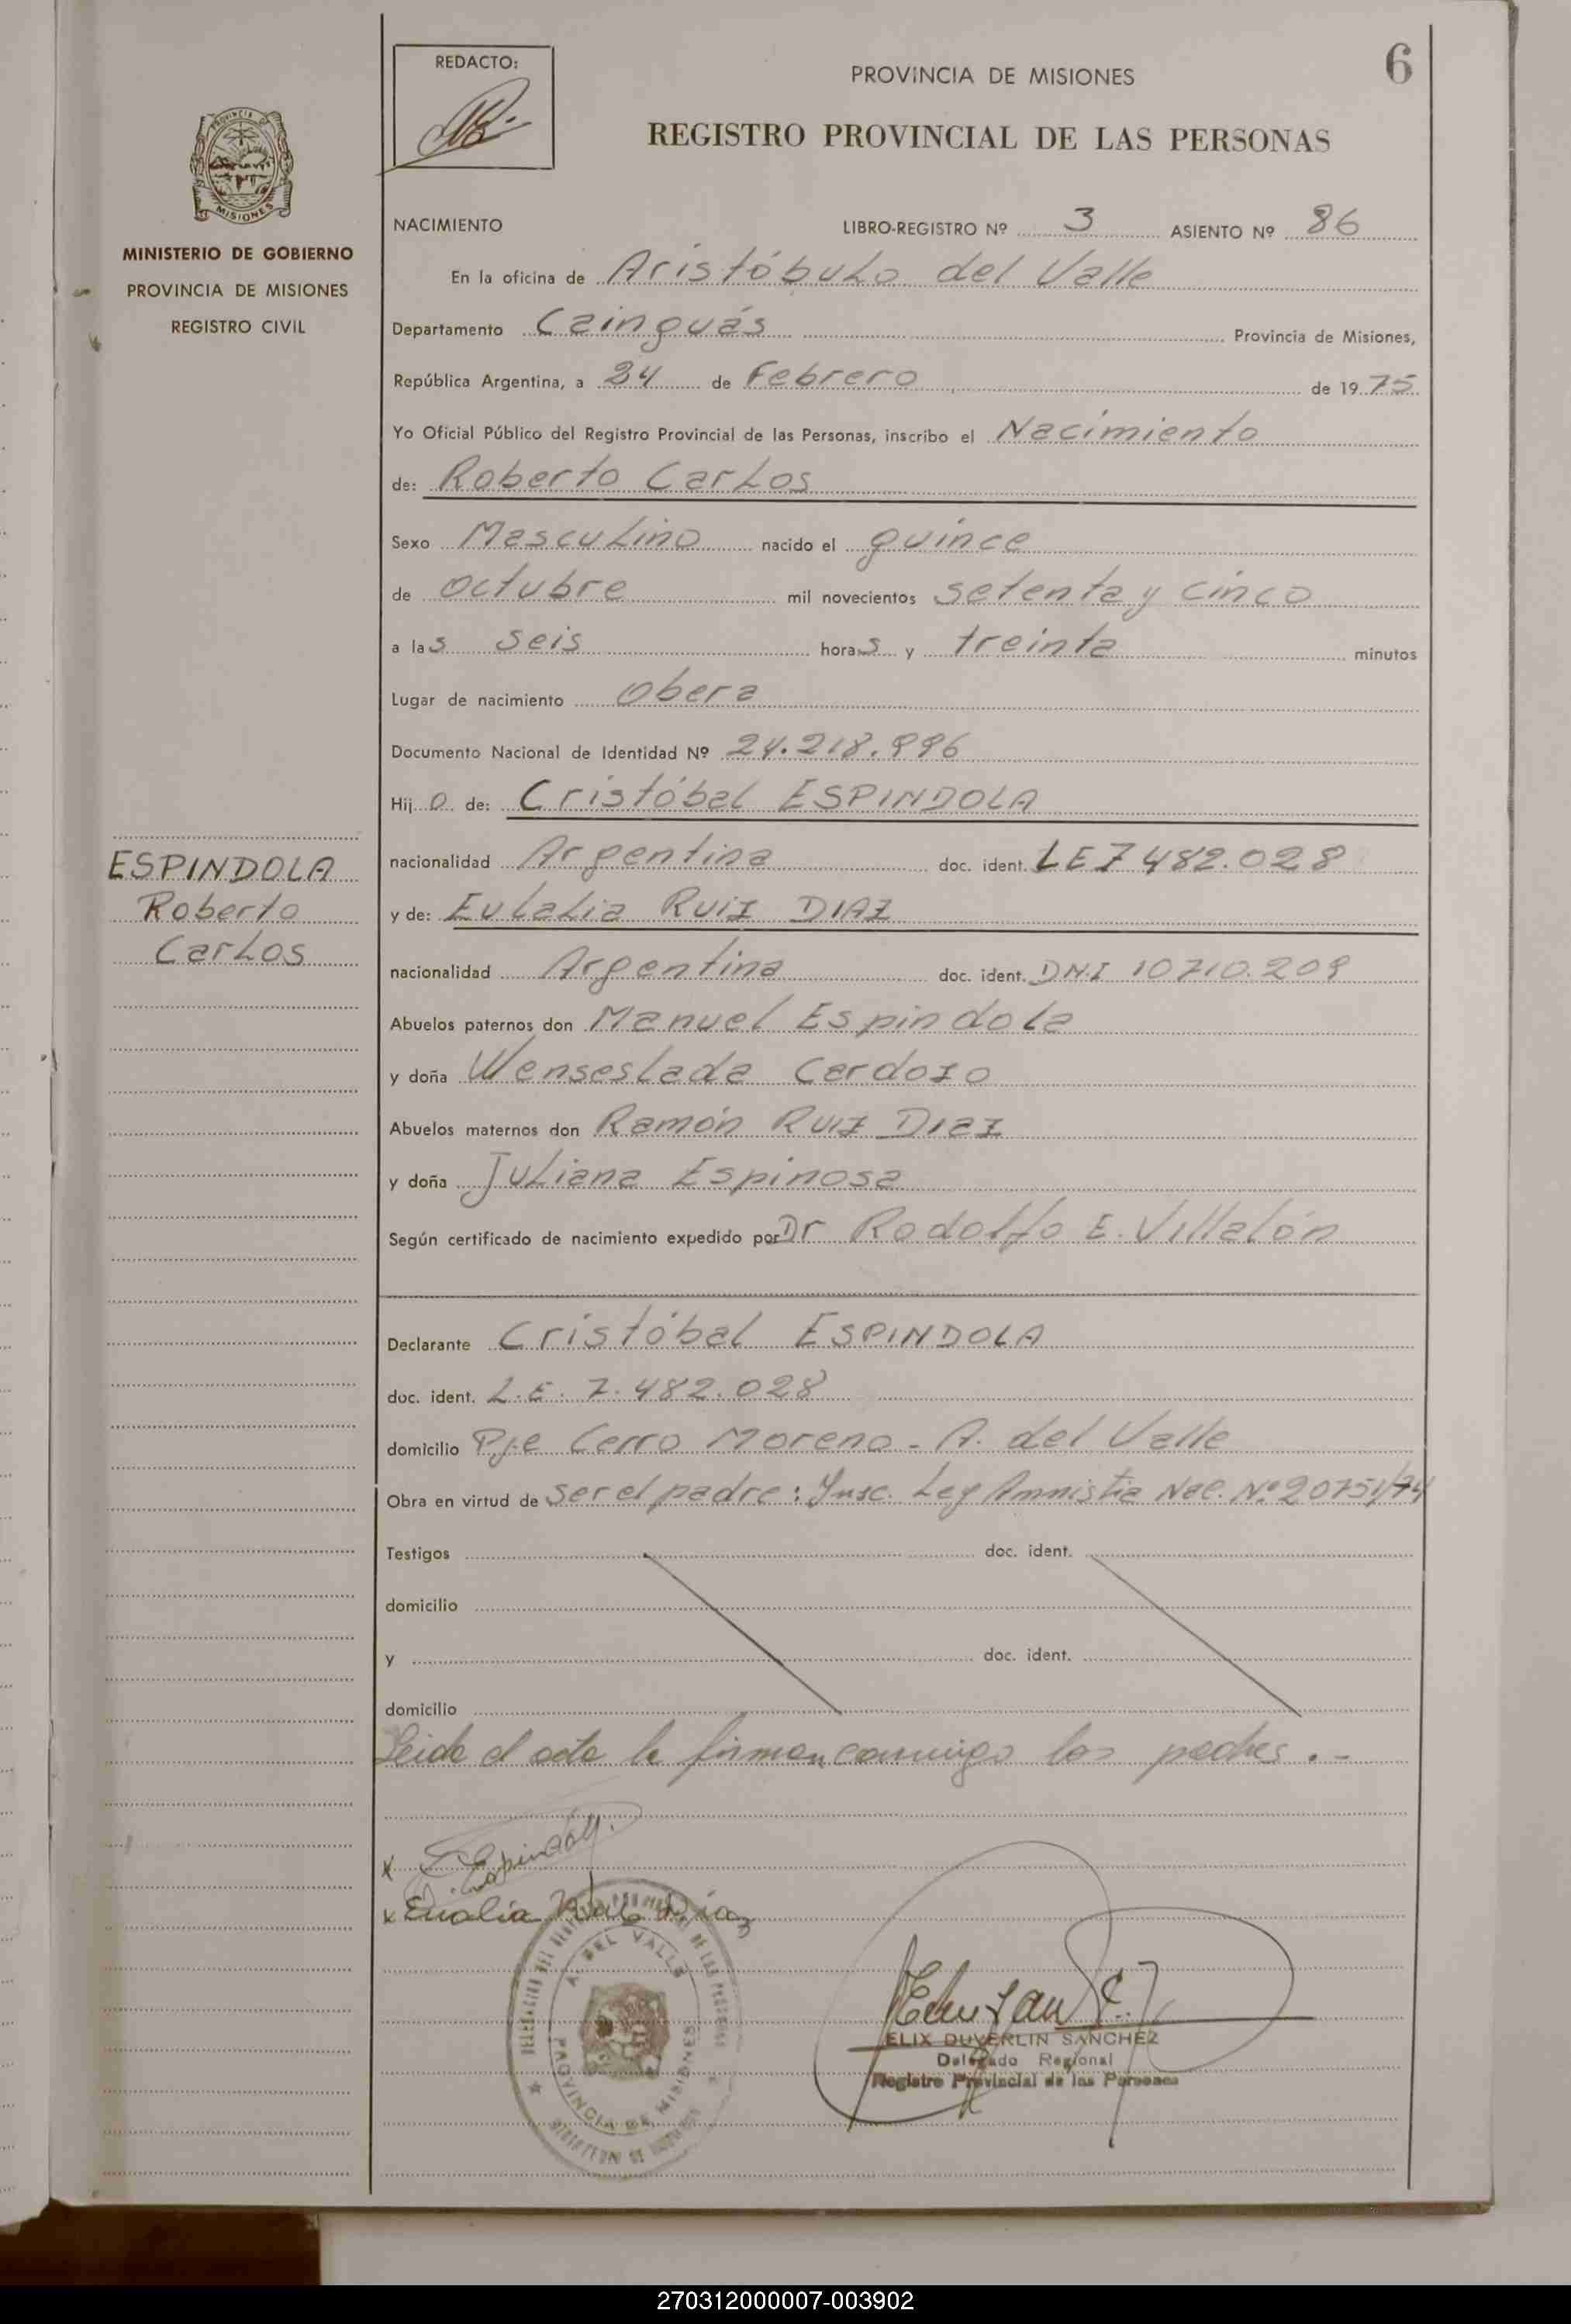 REDACTO:
PROVINCIA DE MISIONES
6
REGISTRO PROVINCIAL DE LAS PERSONAS
PROVINCIA DE
MISIONES
MINISTERIO DE GOBIERNO
PROVINCIA DE MISIONES
REGISTRO CIVIL
NACIMIENTO LIBRO-REGISTRO Nº 3 ASIENTO Nº 86
En la oficina de Aristóbulo del Valle
Departamento Cainguás Provincia de Misiones,
República Argentina, a 24 de Febrero de 1975
Yo Oficial Público del Registro Provincial de las Personas, inscribo el Nacimiento
de: Roberto Carlos
Sexo Masculino nacido el quince
de octubre mil novecientos setenta y cinco
a las seis horas y treinta minutos
Lugar de nacimiento Obera
Documento Nacional de Identidad Nº 24.218.996
Hijo de: Cristóbal ESPINDOLA
ESPINDOLA
Roberto
Carlos
nacionalidad Argentina doc. ident. LE 7482.028
y de: Eulalia Ruiz DIAZ
nacionalidad Argentina doc. ident. D.N.I 10710.209
Abuelos paternos don Manuel Espindola
y doña Wenseslada Cardozo
Abuelos maternos don Ramón Ruiz Diaz
y doña Juliana Espinosa
Según certificado de nacimiento expedido por Dr Rodolfo E. Villalón
Declarante Cristóbal ESPINDOLA
doc. ident. L.E. 7.482.028
domicilio Pje Cerro Moreno - A. del Valle
Obra en virtud de ser el padre: Insc. Ley Amnistia Nac. Nº 20751/74
Testigos doc. ident.
domicilio
y doc. ident.
domicilio
Leida el acta la firman conmigo los padres.-
x Espindola
x Eualia Ruiz Diaz
A. DEL VALLE
PROVINCIA DE MISIONES
ELIX DUVERLIN SANCHEZ
Delegado Regional
Registro Provincial de las Personas
270312000007-003902